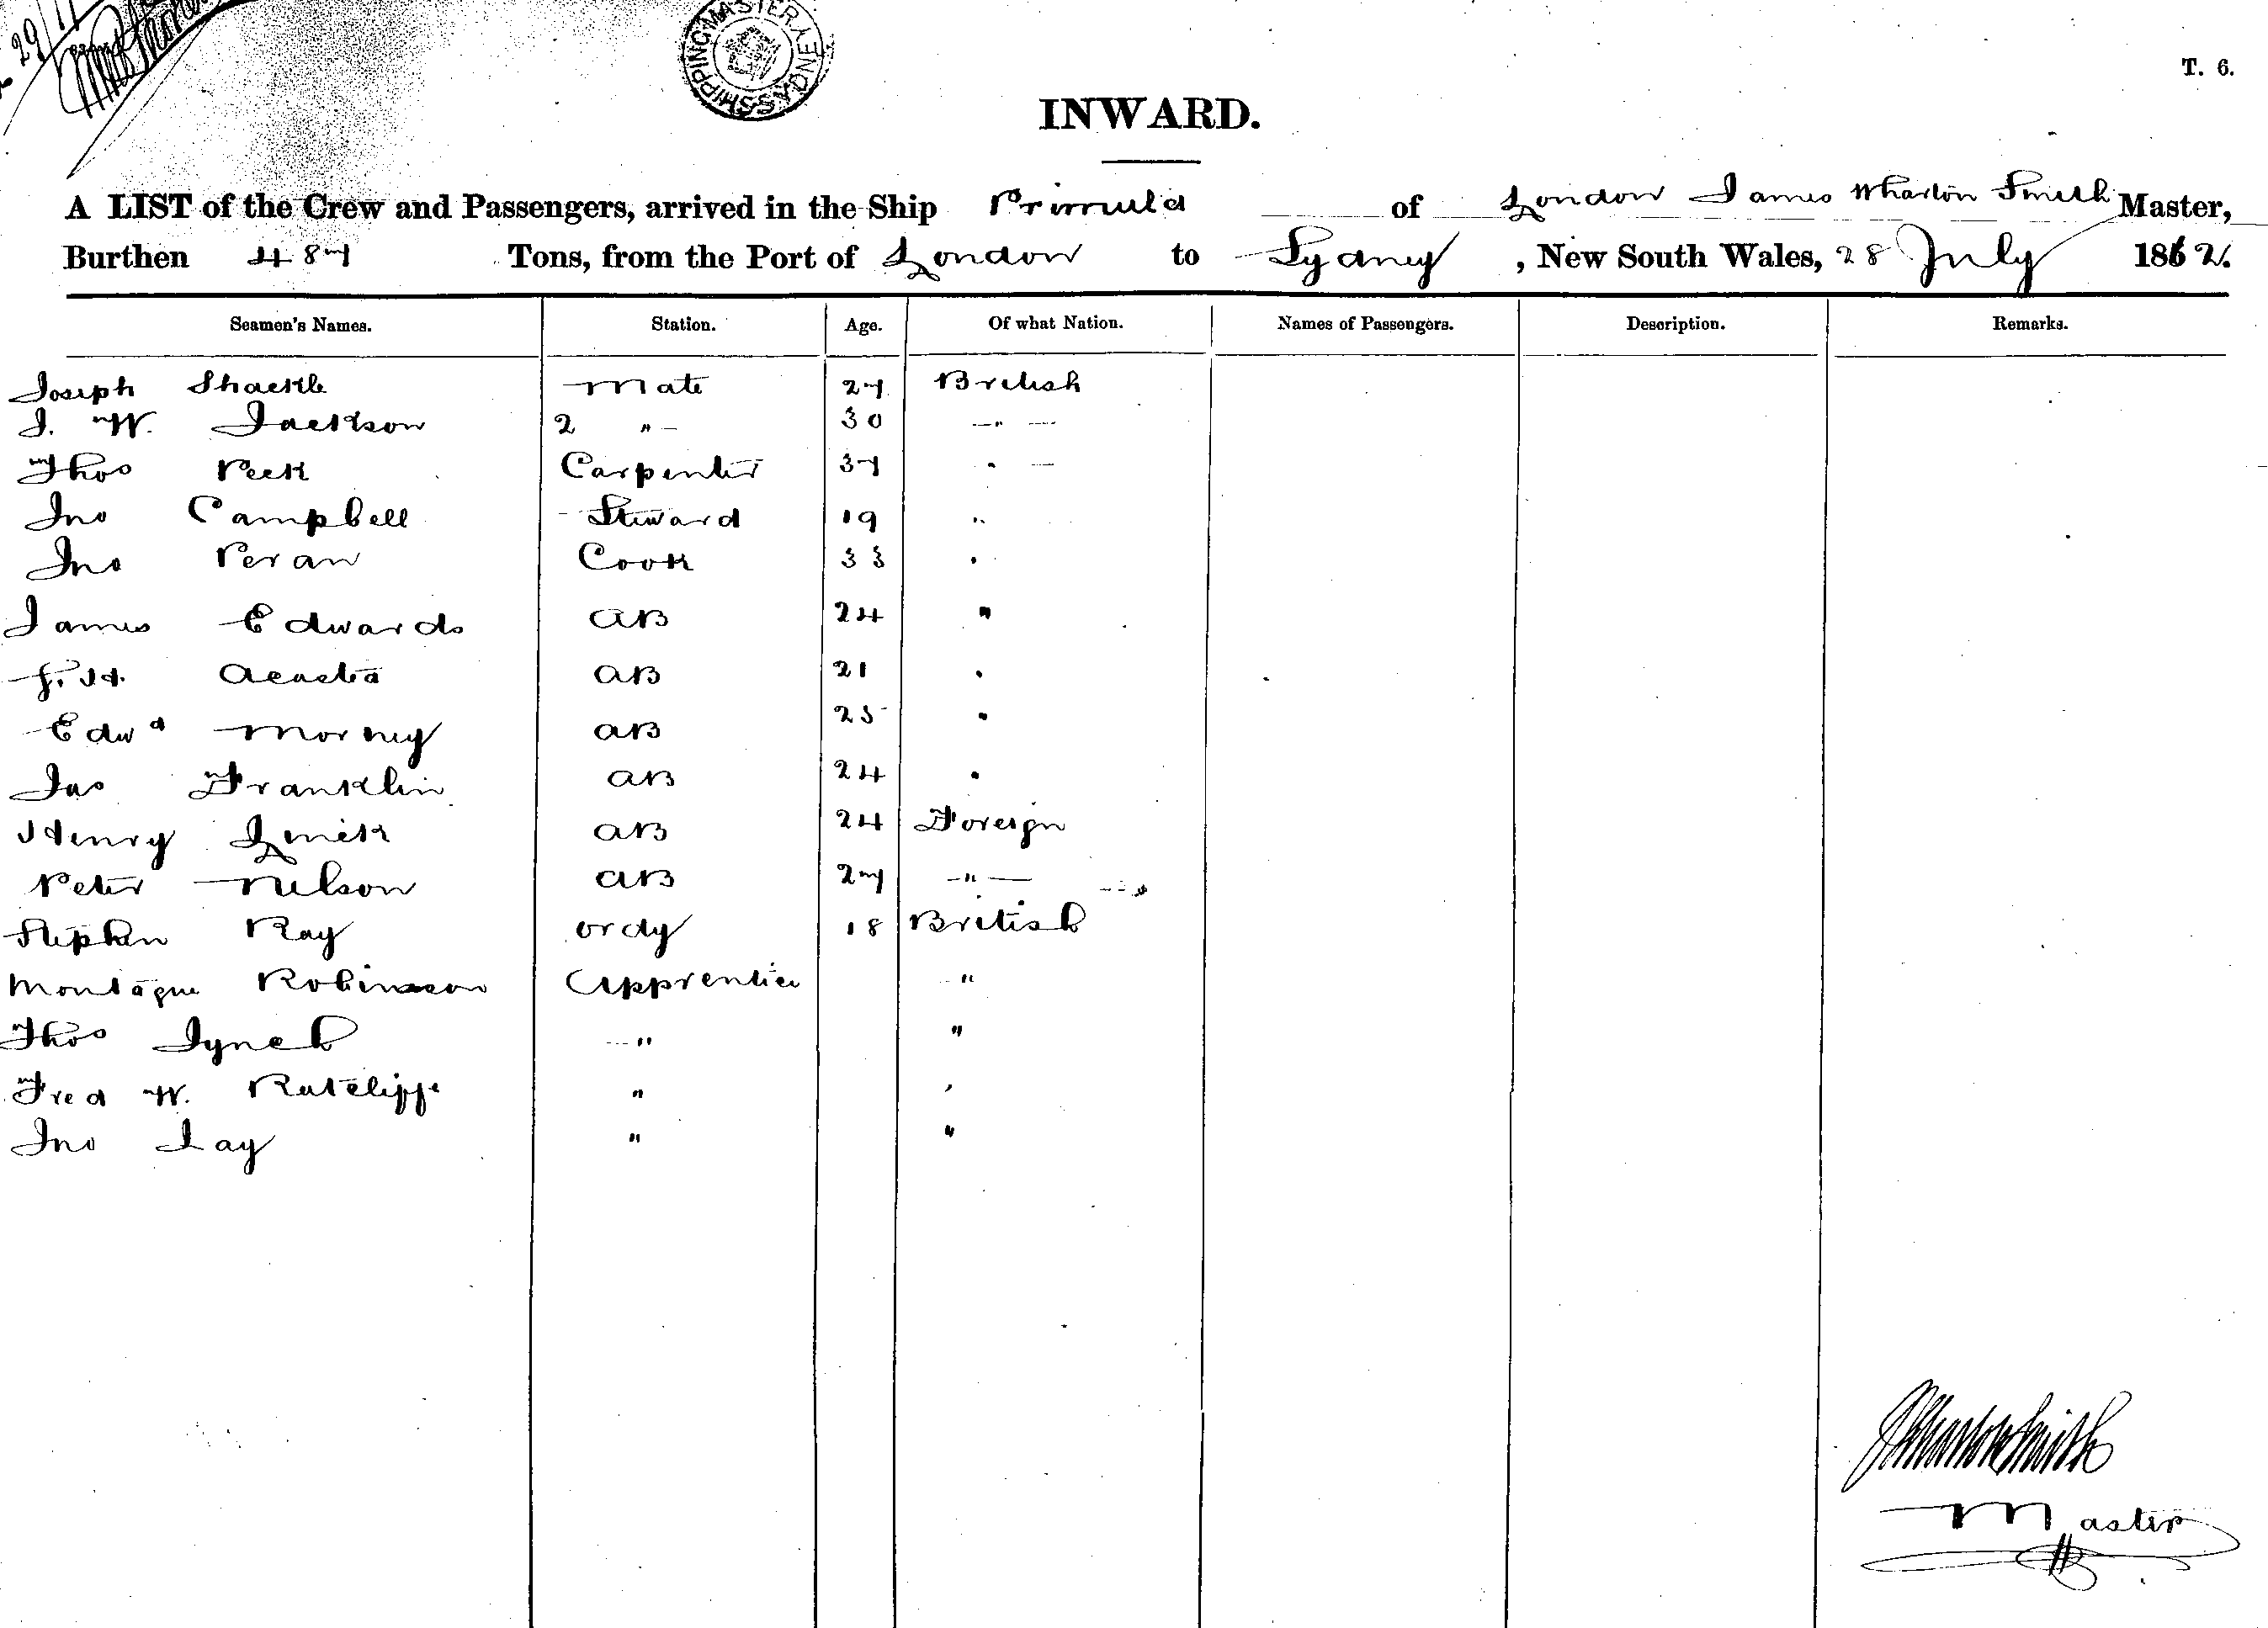 29/
SHIPPING MASTER SYDNEY
T. 6.
INWARD.
A LIST of the Crew and Passengers, arrived in the Ship Primula of London James Wharton Smith Master,
Burthen 487 Tons, from the Port of London to Sydney, New South Wales, 28 July 1862.
Seamen's Names. Station. Age. Of what Nation. Names of Passengers. Description. Remarks.
Joseph Shackle Mate 27 British
J. W. Jackson 2 " 30 "
Thos Peek Carpenter 37 "
Jno Campbell Steward 19 "
Jno Peran Cook 33 "
James Edwards AB 24 "
F. H. AB 21 "
Edwd Morney AB 25 "
Jas Franklin AB 24 "
Henry AB 24 Foreign
Peter Nelson AB 27 "
Stephen Ray ordy 18 British
Montague Robinson Apprentice "
Thos Lynch " "
Fred W. Ratcliffe " "
Jno Lay " "
J Wharton Smith
Master